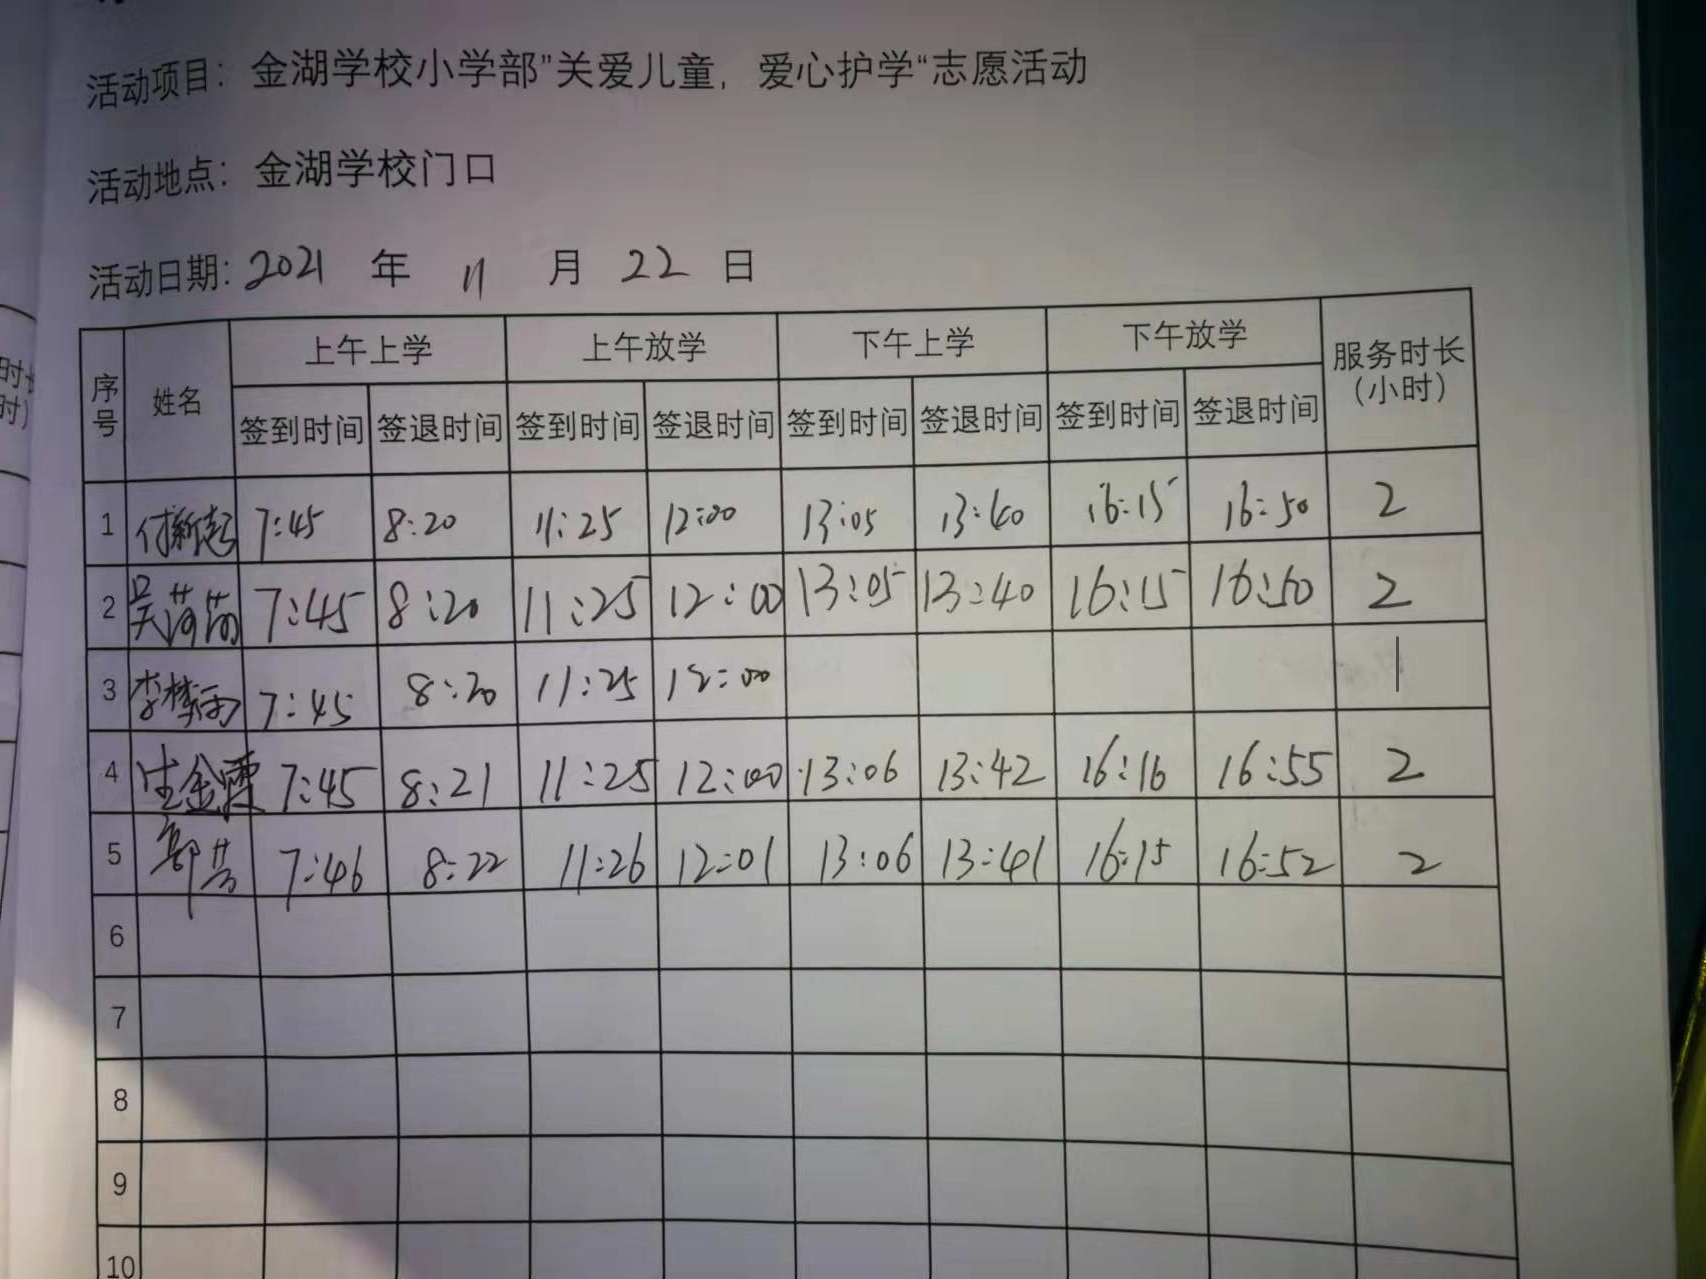 活动项目：金湖学校小学部”关爱儿童，爱心护学“志愿活动
活动地点：金湖学校门口
活动日期：2021 年 11 月 22 日
序号 姓名 上午上学 上午放学 下午上学 下午放学 服务时长（小时）
签到时间 签退时间 签到时间 签退时间 签到时间 签退时间 签到时间 签退时间
1 付新起 7:45 8:20 11:25 12:00 13:05 13:40 16:15 16:50 2
2 吴茴茴 7:45 8:20 11:25 12:00 13:05 13:40 16:15 16:50 2
3 李梦雨 7:45 8:20 11:25 12:00 1
4 生金霞 7:45 8:21 11:25 12:00 13:06 13:42 16:16 16:55 2
5 郭芸 7:46 8:22 11:26 12:01 13:06 13:41 16:15 16:52 2
6
7
8
9
10